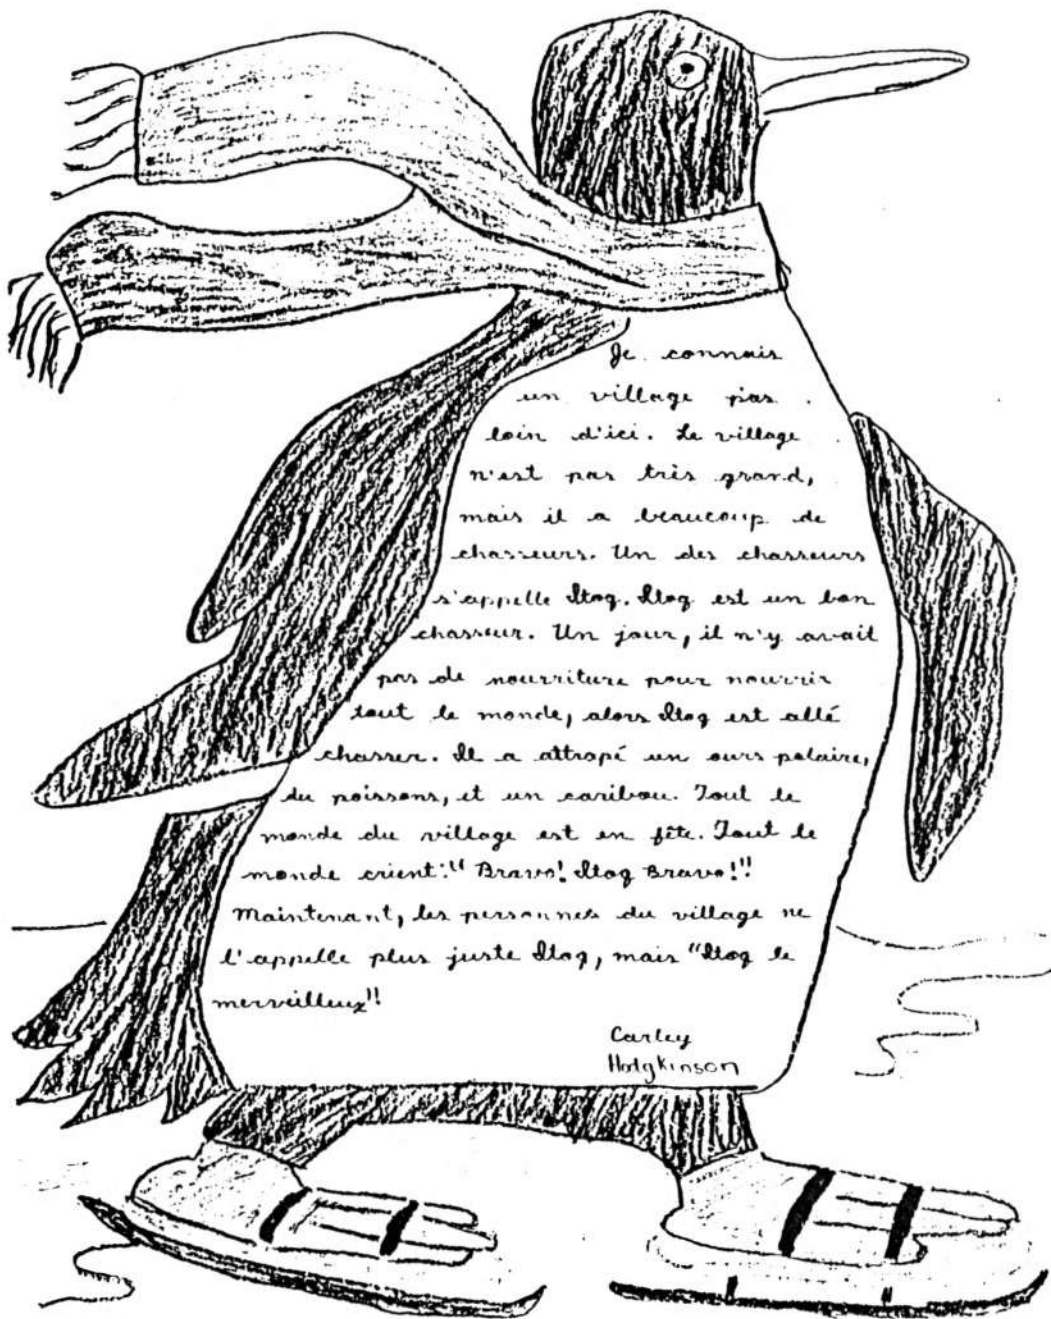 Je connais
un village pas
loin d'ici. Le village
n'est pas très grand,
mais il a beaucoup de
chasseurs. Un des chasseurs
s'appelle Itog. Itog est un bon
chasseur. Un jour, il n'y avait
pas de nourriture pour nourrir
tout le monde, alors Itog est allé
chasser. Il a attropé un ours polaire,
du poissons, et un caribou. Tout le
monde du village est en fête. Tout le
monde crient: "Bravo! Itog Bravo!"
Maintenant, les personnes du village ne
l'appelle plus juste Itog, mais "Itog le
merveilleux"!
Carley
Hodgkinson